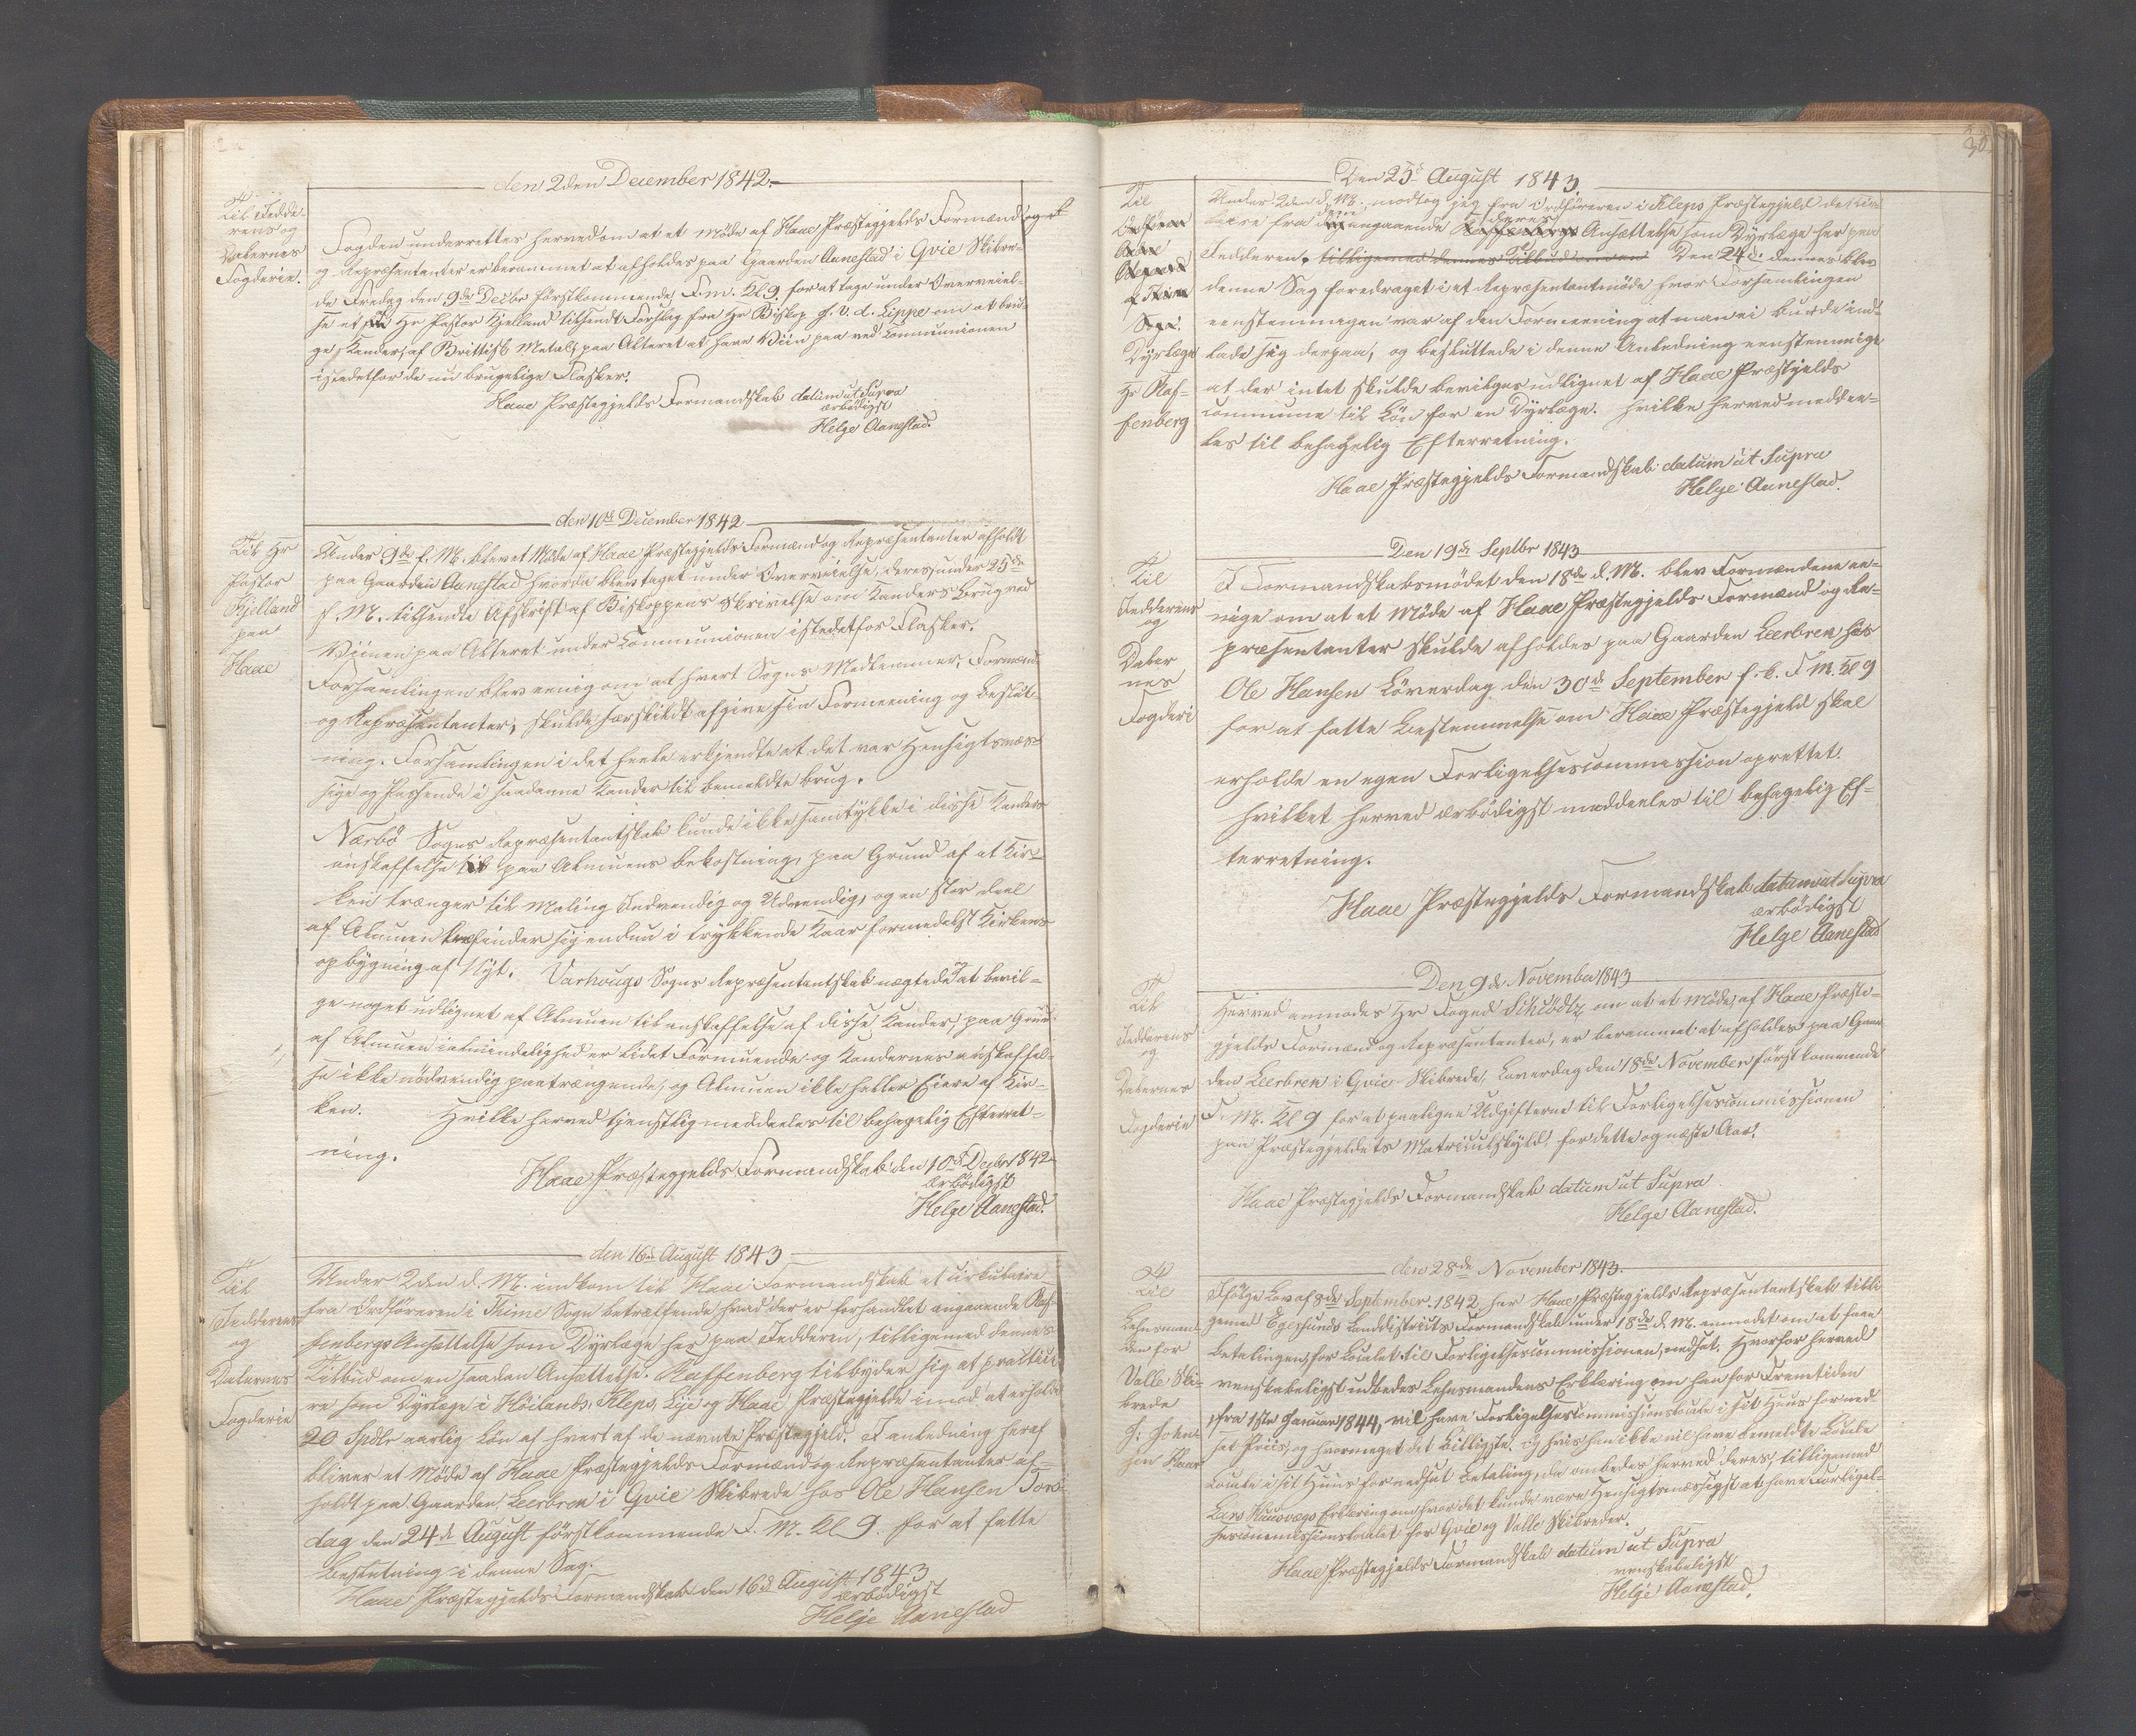 den 2den December 1842.
Til Jedde-
rens og
Dalernes
Fogderie.
Fogden underrettes herved om at et Møde af Haae Præstegjelds Formænd
og Repræsentanter er berammet at afholdes paa Gaarden Aanestad i Qvie Skibre-
de Fredag den 9de Decbr førstkommende F.m. Kl 9. for at tage under Overveiel-
se et fra Hr Pastor Kjelland tilsendt Forslag fra Hr Biskop J. v. d. Lippe om at bru-
ge Kander, af Brittisk Metal, paa Alteret at have Viin paa ved Communionen
istedetfor de nu brugelige Flasker.
Haae Præstegjelds Formandskab datum ut Supra
ærbødigst
Helge Aanestad.
den 10de December 1842
Til Hr
Pastor
Kjelland
paa
Haae
Under 9de d. M. blev et Møde af Haae Præstegjelds Formænd og Repræsentanter afholdt
paa Gaarden Aanestad hvorda blev taget under Overveielse, deres under 25de
f. M. tilsendte Afskrift af Biskoppens Skrivelse om Kanders Brug ved
Viinen paa Alteret under Communionen istedetfor Flasker.
Forsamlingen blev eenig om at hvert Sogns Medlemmer, Formænd
og Repræsentanter, skulde særskildt afgive sin Formeening og Beslut-
ning. Forsamlingen i det heele erkjendte at det var Hensigtsmæs-
sige og Passende i saadanne Kander til bemeldte brug.
Nærbø Sogns Repræsentantskab kunde ikke samtykke i disse Kanders
anskaffelse paa Almuens bekostning, paa Grund af at Kir-
ken trænger til Maling Indvendig og Udvendig, og en stor deel
af Almuen befinder sig endnu i trykkende Kaar formedelst Kirkens
opbygning af Nyt. Varhougs Sogns Repræsentantskab nægtede at bevil-
ge noget udlignet af Almuen til anskaffelse af disse Kander, paa Grund
af Almuen i almindelighed er lidet Formuende og Kandernes anskaffel-
se ikke nødvendig paatrængende, og Almuen ikke heller Eiere af Kir-
ken. Hvilke herved tjenstlig meddeeles til behagelig Efterret-
ning.
Haae Præstegjelds Formandskab den 10de Decbr 1842
ærbødigst
Helge Aanestad.
den 16de August 1843
Til
Jedderens
og
Dalernes
Fogderie
Under 2den d. M. indkom til Haae Formandskab et cirkulaire
fra Ordføreren i Thime Sogn betræffende hvad der er forhandlet angaaende Raf-
fenbergs Ansættelse som Dyrlæge her paa Jedderen, tilligemed dennes
Tilbud om en saadan Ansættelse. Raffenberg tilbyder sig at practice-
re som Dyrlæge i Høilands, Kleps, Lye og Haae Præstegjelde imod at erholde
20 Spdlr aarlig Løn af hvert af de nævnte Præstegjeld. I anledning heraf
bliver et Møde af Haae Præstegjelds Formænd og Repræsentanter af-
holdt paa Gaarden Leerbrek i Qvie Skibrede hos Ole Hansen Tors-
dag den 24de August førstkommende F. M. Kl 9. for at fatte
Beslutning i denne Sag.
Haae Præstegjelds Formandskab den 16de August 1843
ærbødigst
Helge Aanestad
30
Den 25de August 1843.
Til
Dyrlæge
Hr Raf-
fenberg
Under 2den d. M. modtog jeg fra Ordføreren i Kleps Præstegjeld
fra dem angaaende deres Ansættelse som Dyrlæge her paa
Jedderen. tilligemed dennes Tilbud Den 24de dennes blev
denne Sag foredraget i et Repræsentantmøde hvor Forsamlingen
eenstemmigen var af den Formeening at man ei burde ind-
lade sig derpaa, og besluttede i denne Anledning eenstemmigt
at der intet skulde bevilges udlignet af Haae Præstgjelds
Commune til Løn for en Dyrlæge. Hvilke herved meddee-
les til behagelig Efterretning.
Haae Præstegjelds Formandskab datum ut Supra
Helge Aanestad.
Den 19de Septbr 1843
Til
Jedderens
og
Daler
nes
Fogderi
I Formandskabsmødet den 18de d. M. blev Formændene ee-
nige om at et Møde af Haae Præstegjelds Formænd og Re-
præsentanter skulde afholdes paa Gaarden Leerbrek hos
Ole Hansen Løverdag den 30de September f. k. F. M. Kl 9
for at fatte Bestemmelse om Haae Præstegjeld skal
erholde en egen Forligelsescommission oprettet.
Hvilket herved ærbødigst meddeeles til behagelig Ef-
terretning.
Haae Præstegjelds Formandskab datum ut Supra
ærbødigst
Helge Aanestad
Den 9de November 1843
Til
Jedderens
og
Dalernes
Fogderie
Herved anmodes Hr Foged Schiödtz om at et Møde, af Haae Præste-
gjelds Formænd og Repræsentanter, er berammet at afholdes paa Gaar
den Leerbrek i Qvie Skibrede, Løverdag den 18de November først kommende
F. M. Kl 9 for at paaligne Udgifterne til Forligelsescommissionen
paa Præstegjeldets Matriculskyld for dette og næste Aar.
Haae Præstegjelds Formandskab datum ut Supra
Helge Aanestad.
den 28de November 1843.
Til
Lehnsman-
den for
Valle Ski-
brede
Ifølge Lov af 8de September 1842 har Haae Præstegjelds Repræsentantskab tilli
gemed Egersunds Landdistricts Formandskab under 18de d. M. anmodet om at faae
Betalingen for Localet til Forligelsescommissionen, nedsat. Hvorfor herved
venskabeligst udbedes Lehnsmandens Erklæring om han for Fremtiden
fra 1ste Januar 1844, vil have Forligelsescommissionslocale i sit Huus for ned-
sat Priis, og hvormeget det billigste, og hvis han ikke vil have bemeldte Locale
Locale i sit Huus for nedsat Betaling, da ombedes herved deres, tilligemed
Lars Erklæring om hvor det kunde være Hensigtsmæssigst at have Forligel-
sescommissionslocalet for Qvie og Valle Skibreder.
Haae Præstegjelds Formandskab datum ut Supra
venskabeligst
Helge Aanestad.